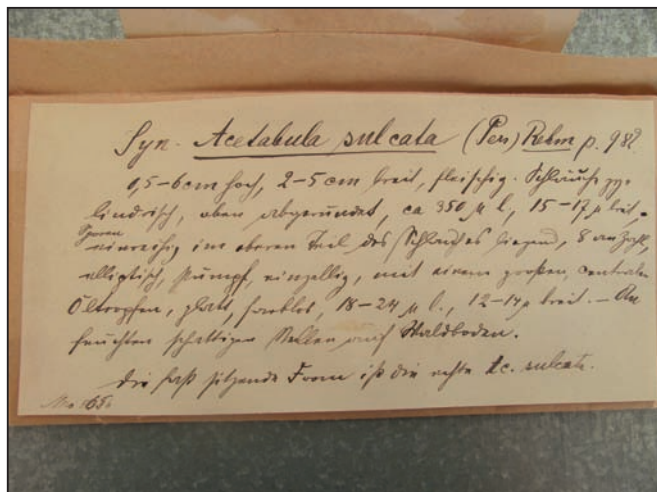 Syn. Acetabula sulcata (Pers) Rehm p. 982
0,5-6cm hoch, 2-5 cm breit, fleischig. Schläuche zy-
lindrisch, oben abgerundet, ca 350 µ l, 15-17 µ breit.
Sporen
einreihig im oberen Teil des Schlauches liegend, 8 an Zahl,
elliptisch, stumpf, einzellig, mit einem großen, centralen
Öltropfen, glatt, farblos, 18-24 µ l., 12-14 µ breit. - An
feuchten schattigen Stellen auf Waldboden.
Die fast sitzende Form ist die echte Ac. sulcata.